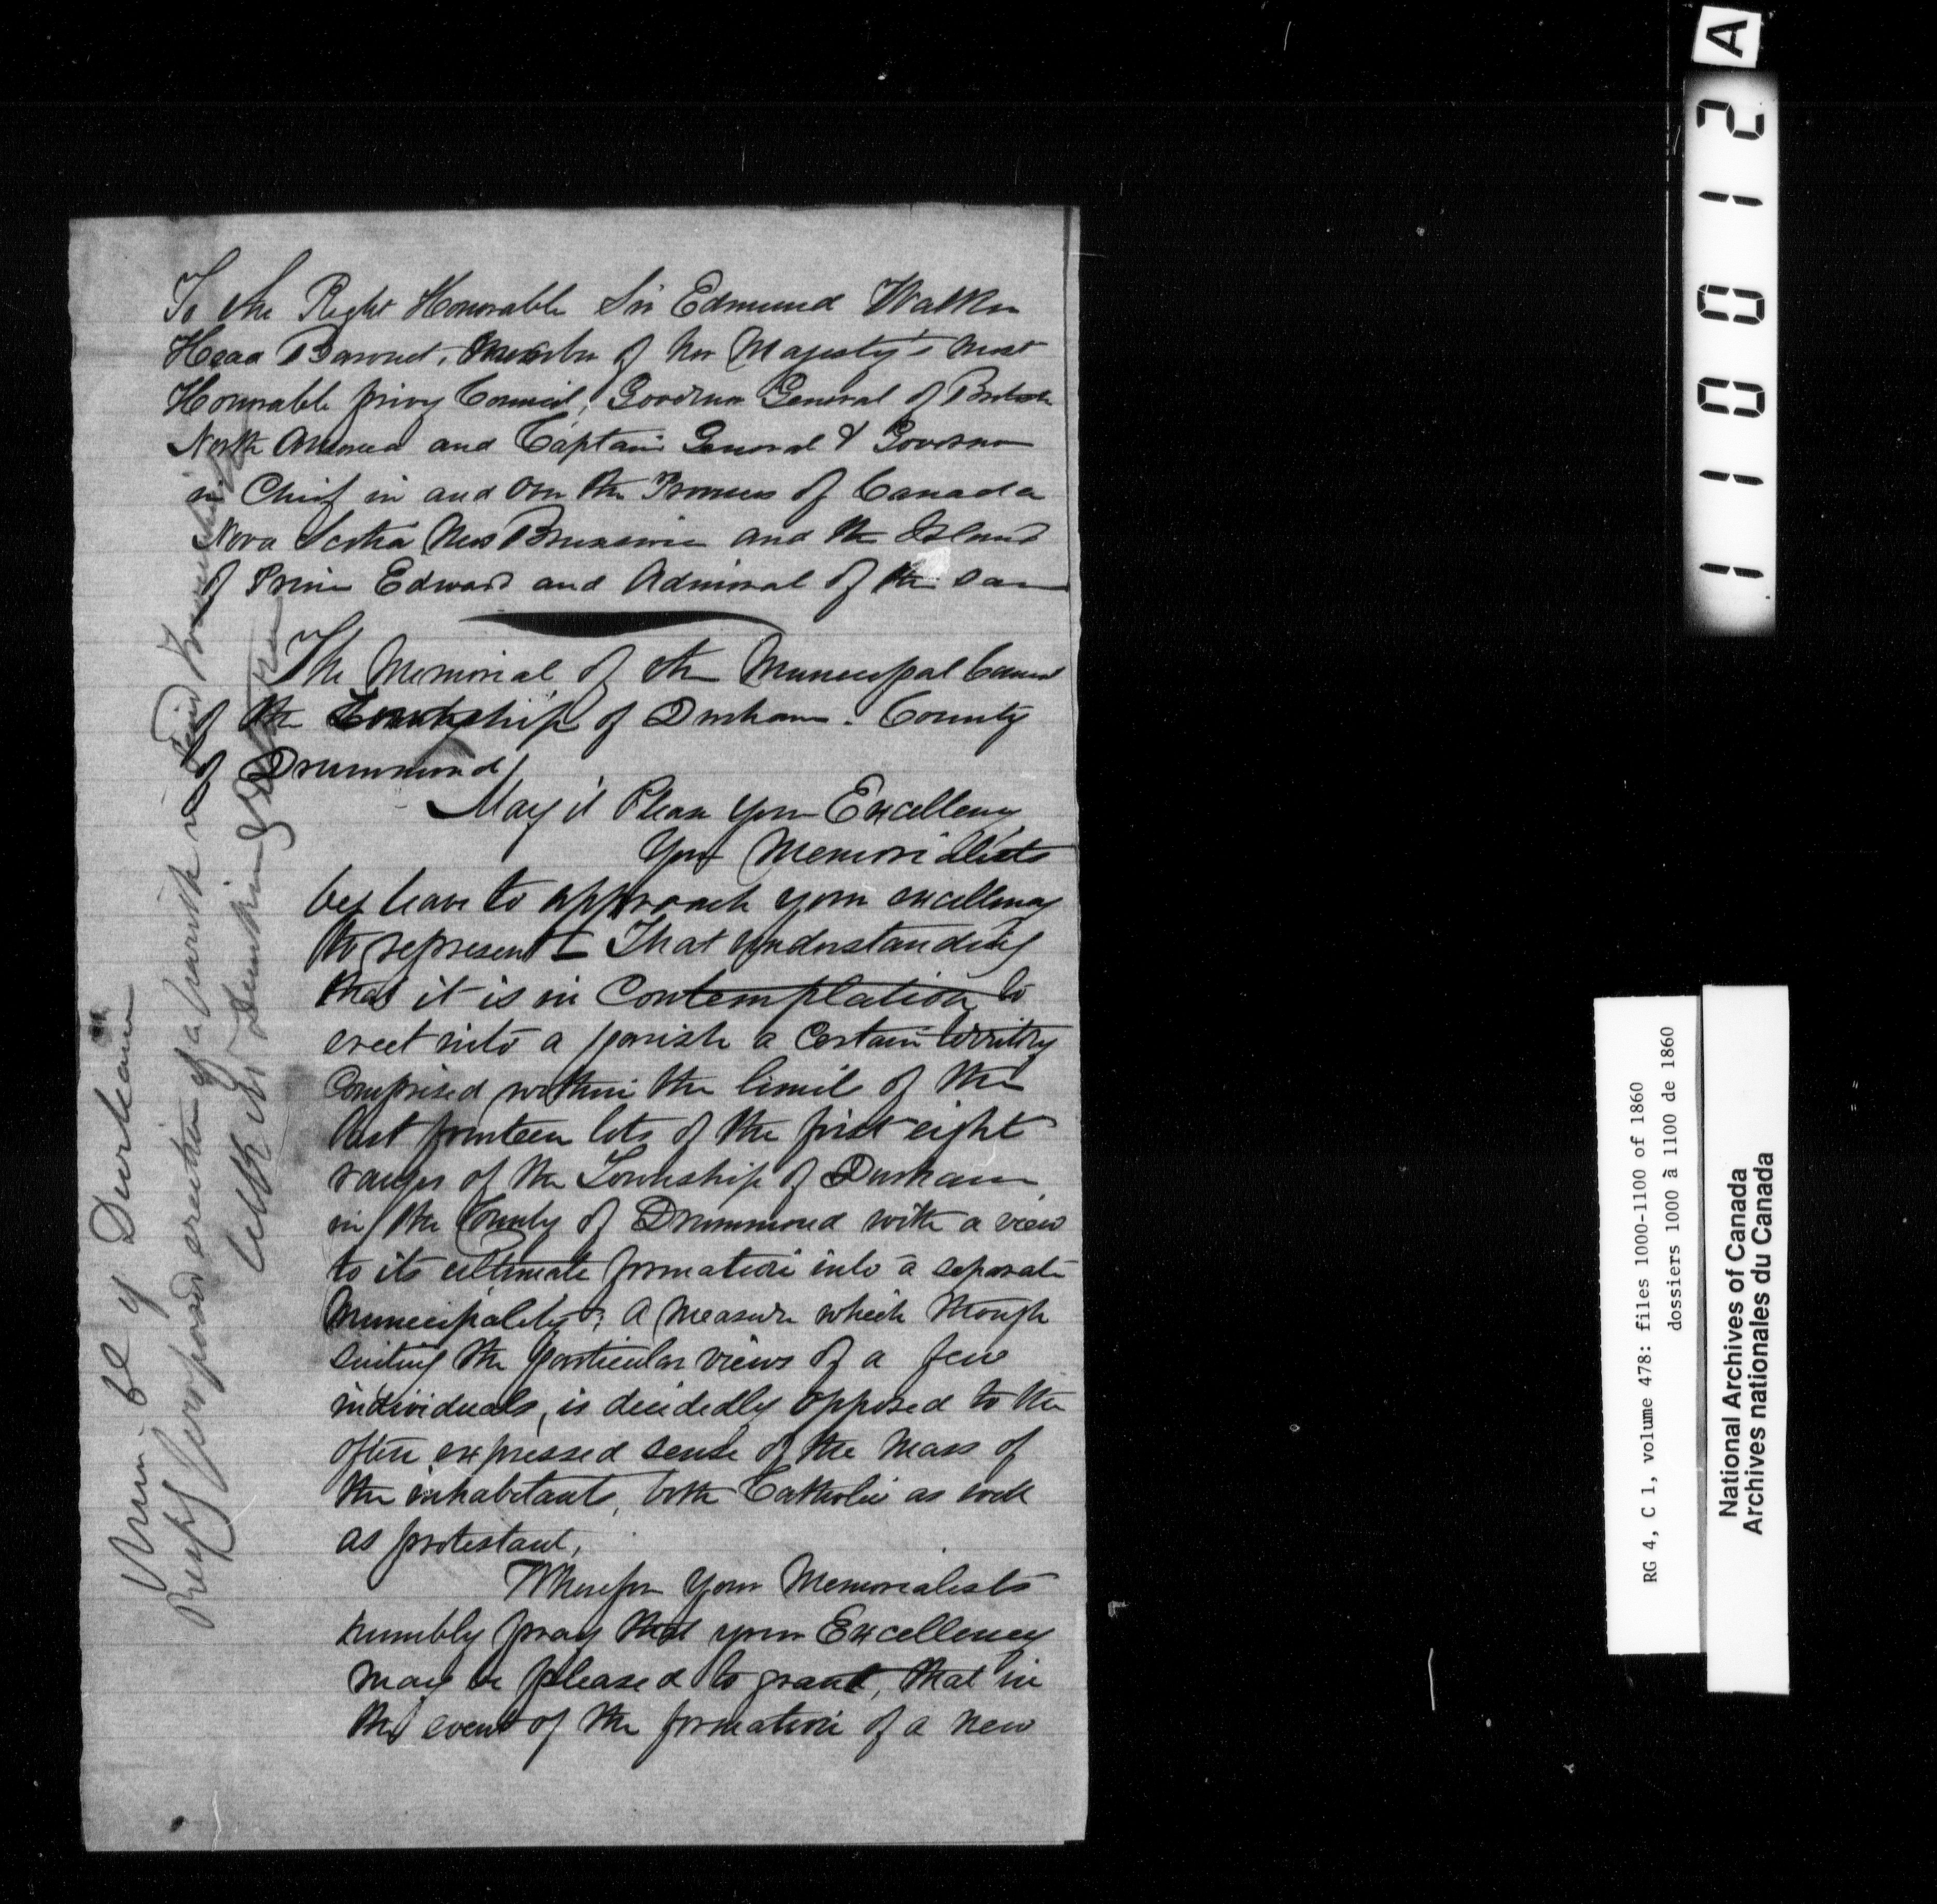 To the Right Honorable Sir Edmund Walker
Head Baronet, Member of her Majesty's Most
Honorable privy Council, Governor General of British
North America and Captain General & Governor
in Chief in and over the Provinces of Canada
Nova Scotia New Brunswick and the Island
of Prince Edward and Admiral of the same
The Memorial of the Municipal Council
of the Township of Durham. County
of Drummond
May it Please your Excellency
Your Memorialists
beg leave to approach your excellency
to represent - That understanding
that it is in Contemplation to
erect into a parish a Certain territory
Comprised within the limits of the
last fourteen lots of the first eight
ranges of the Township of Durham
in the County of Drummond with a view
to its ultimate formation into a separate
Municipality; A Measure which though
suiting the particular views of a few
individuals, is decidedly opposed to the
often expressed sense of the Mass of
the inhabitants, both Catholic as well
as protestant,
Wherefore Your Memorialists
humbly pray that your Excellency
may be pleased to grant, that in
the event of the formation of a new
Mun. Cl of Durham
Resp'g proposed erection of a parish in said Township
A
110012
RG 4, C 1, volume 478: files 1000-1100 of 1860
dossiers 1000 à 1100 de 1860
National Archives of Canada
Archives nationales du Canada